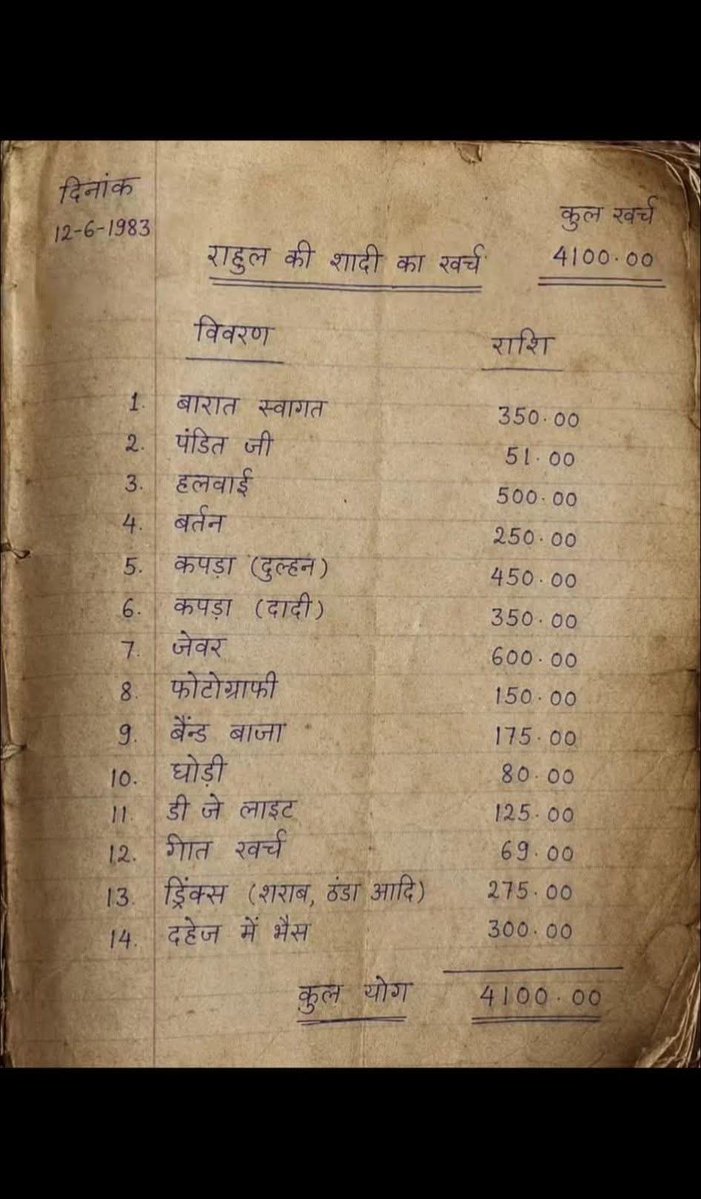 दिनांक
12-6-1983
कुल खर्च
4100.00
राहुल की शादी का खर्च
विवरण राशि
1. बारात स्वागत 350.00
2. पंडित जी 51.00
3. हलवाई 500.00
4. बर्तन 250.00
5. कपड़ा (दुल्हन) 450.00
6. कपड़ा (दादी) 350.00
7. जेवर 600.00
8. फोटोग्राफी 150.00
9. बैंन्ड बाजा 175.00
10. घोड़ी 80.00
11. डी जे लाइट 125.00
12. खर्च 69.00
13. ड्रिंक्स (शराब, ठंडा आदि) 275.00
14. दहेज में भैस 300.00
कुल योग 4100.00